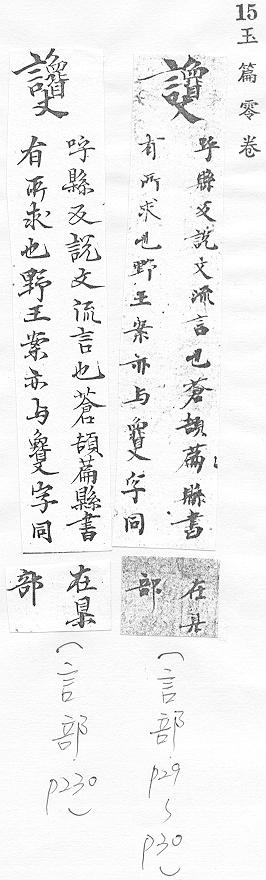 15玉篇零卷
讂
呼縣反説文流言也蒼頡篇縣書
有所求也野王案亦与敻字同
在
部
（言部 p29～p30）
讂
呼縣反説文流言也蒼頡篇縣書
有所求也野王案亦与敻字同
在
部
（言部 p230）